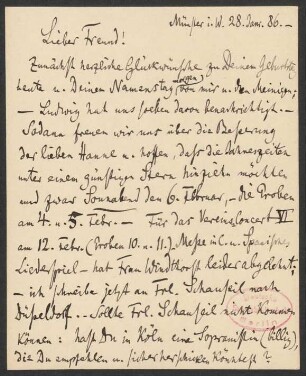 Münster i. W. 28. Jan. 86. —
Lieber Freund!
Zunächst herzliche Glückwünsche zu Deinem Geburtstag
heute u. Deinem Namenstag morgen von mir u. den Meinigen;
— Ludwig hat uns soeben davon benachrichtigt. —
Sodann freuen wir uns über die Besserung
der lieben Hanne u. hoffen, daß die
unter einem günstigen Stern
und zwar Sonnabend den 6. Februar, — die Proben
am 4. u. 5. Febr. — Für das Vereinsconcert VI
am 12. Febr. (Proben 10. u. 11.) Messe in C. u. Spanisches
Liederspiel — hat Frau Windthorst leider abgelehnt.
— ich schreibe jetzt an Frl. Schauseil nach
Düsseldorf. — Sollte Frl. Schauseil nicht kommen
können: hast Du in Köln eine Sopranistin (billig),
die Du empfehlen u. sicher herschicken könntest?